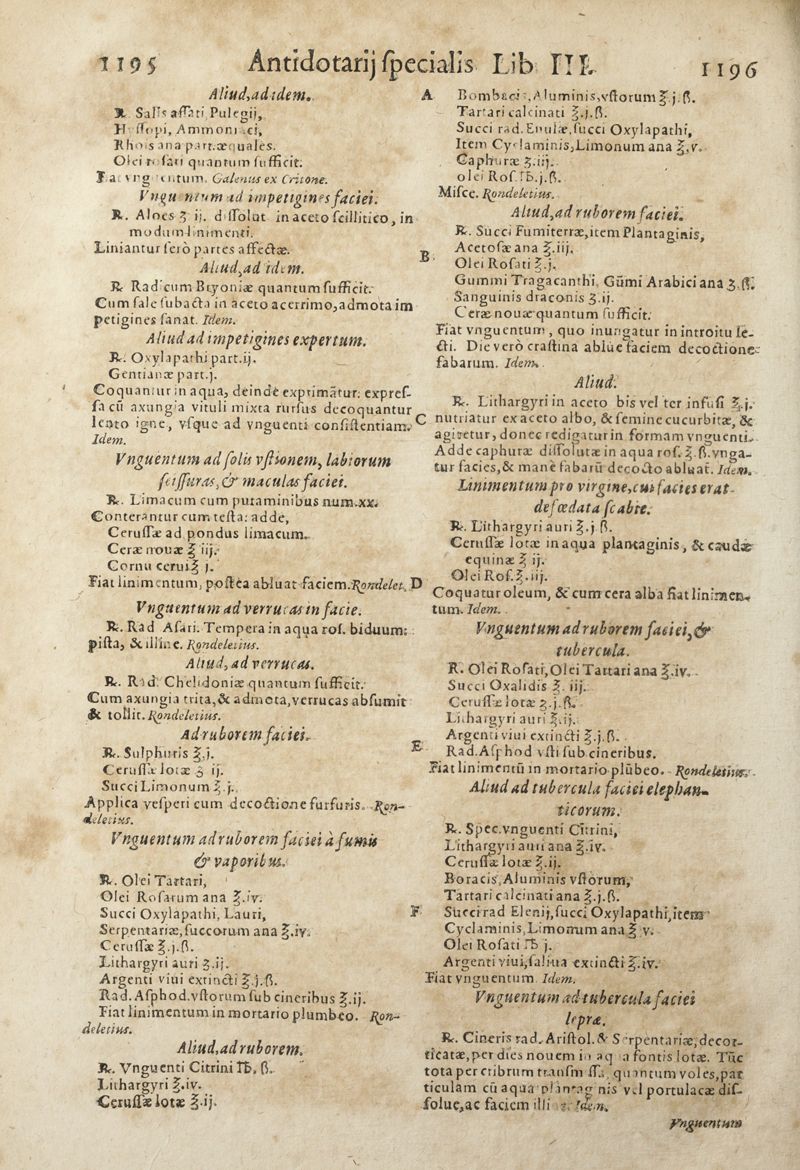 1195 Antidotarij specialis Lib III. 1196
Aliud, ad idem.
℞. Salis assati, Pulegij,
Ammoniaci,
Rhois ana part. æquales.
Olei rosati quantum sufficit.
Galenus ex Critone.
Vnguentum ad impetigines faciei.
℞. Aloes ʒ ij. dissolut in aceto scillitico, in
modum linimenti.
Liniantur sero partes affectæ.
Aliud, ad idem.
℞ Radicum Bryoniæ quantum sufficit.
Cum sale subacta in aceto acerrimo, admota im
petigines sanat. Idem.
Aliud ad impetigines expertum.
℞. Oxylapathi part. ij.
Gentianæ part. j.
Coquantur in aqua, deinde exprimātur: expres-
sa cū axungia vituli mixta rursus decoquantur
lento igne, vsque ad vnguenti consistentiam.
Idem.
Vnguentum ad solis vstionem, labiorum
fissuras, & maculas faciei.
℞. Limacum cum putaminibus num. xx.
Conterantur cum testa: adde,
Cerussæ ad pondus limacum.
Ceræ nouæ ℥ iij.
Cornu cerui ℥ j.
Fiat linimentum, postea abluat faciem. Rondelet.
Vnguentum ad verrucas in facie.
℞. Rad Asari. Tempera in aqua ros. biduum:
pista, & illine. Rondeletius.
Aliud, ad verrucas.
℞. Rad. Chelidoniæ quantum sufficit.
Cum axungia trita, & admota, verrucas absumit
& tollit. Rondeletius.
Ad ruborem faciei.
℞. Sulphuris ℥.j.
Cerussæ lotæ ʒ ij.
Succi Limonum ℥.j.
Applica vesperi cum decoctione furfuris. Ron-
deletius.
Vnguentum ad ruborem faciei à fumis
& vaporibus.
℞. Olei Tartari,
Olei Rosarum ana ℥.iv.
Succi Oxylapathi, Lauri,
Serpentariæ, succorum ana ℥.iv.
Cerussæ ℥.j.ß.
Lithargyri auri ʒ.ij.
Argenti viui extincti ℥.j.ß.
Rad. Asphod. vstorum sub cineribus ℥.ij.
Fiat linimentum in mortario plumbeo. Ron-
deletius.
Aliud, ad ruborem.
℞. Vnguenti Citrini ℔. ß.
Lithargyri ℥.iv.
Cerussæ lotæ ℥.ij.
A Bombacis, Aluminis, vstorum ℥.j.ß.
Tartari calcinati ℥.j.ß.
Succi rad. Enulæ, succi Oxylapathi,
Item Cyclaminis, Limonum ana ℥.v.
Caphuræ ʒ.iij.
olei Ros. ℔.j.ß.
Misce. Rondeletius.
Aliud, ad ruborem faciei.
℞. Succi Fumiterræ, item Plantaginis,
Acetosæ ana ℥.iij.
B Olei Rosati ℥.j.
Gummi Tragacanthi, Gūmi Arabici ana ʒ.ß.
Sanguinis draconis ʒ.ij.
Ceræ nouæ quantum sufficit.
Fiat vnguentum, quo inungatur in introitu le-
cti. Die vero crastina ablue faciem decoctione
fabarum. Idem.
Aliud.
℞. Lithargyri in aceto bis vel ter infusi ℥.j.
C nutriatur ex aceto albo, & semine cucurbitæ, &
agitetur, donec redigatur in formam vnguenti.
Adde caphuræ dissolutæ in aqua ros. ℥.ß. vnga-
tur facies, & manè fabarū decocto abluat. Idem.
Linimentum pro virgine, cui facies erat
defœdata scabie.
℞. Lithargyri auri ℥.j.ß.
Cerussæ lotæ in aqua plantaginis, & caudæ
equinæ ℥ ij.
Olei Ros. ℥.iij.
D Coquatur oleum, & cum cera alba fiat linimen-
tum. Idem.
Vnguentum ad ruborem faciei, &
tubercula.
℞. Olei Rosati, Olei Tartari ana ℥.iv.
Succi Oxalidis ℥. iij.
Cerussæ lotæ ʒ.j.ß.
Lithargyri auri ℥.ij.
Argenti viui extincti ℥.j.ß.
E Rad. Asphod vsti sub cineribus.
Fiat linimentū in mortario plūbeo. Rondeletius.
Aliud ad tubercula faciei elephan-
ticorum.
℞. Spec. vnguenti Citrini,
Lithargyri auri ana ℥.iv.
Cerussæ lotæ ℥.ij.
Boracis, Aluminis vstorum,
Tartari calcinati ana ℥.j.ß.
F Succi rad Elenij, succi Oxylapathi, item
Cyclaminis, Limonum ana ℥ v.
Olei Rosati ℔ j.
Argenti viui, saliua extincti ℥.iv.
Fiat vnguentum. Idem.
Vnguentum ad tubercula faciei
lepræ.
℞. Cineris rad. Aristol. & Serpentariæ, decor-
ticatæ, per dies nouem in aqua fontis lotæ. Tūc
tota per cribrum quantum voles, par
ticulam cū aqua plantaginis vel portulacæ dis-
solue, ac faciem illi Idem.
Vnguentum